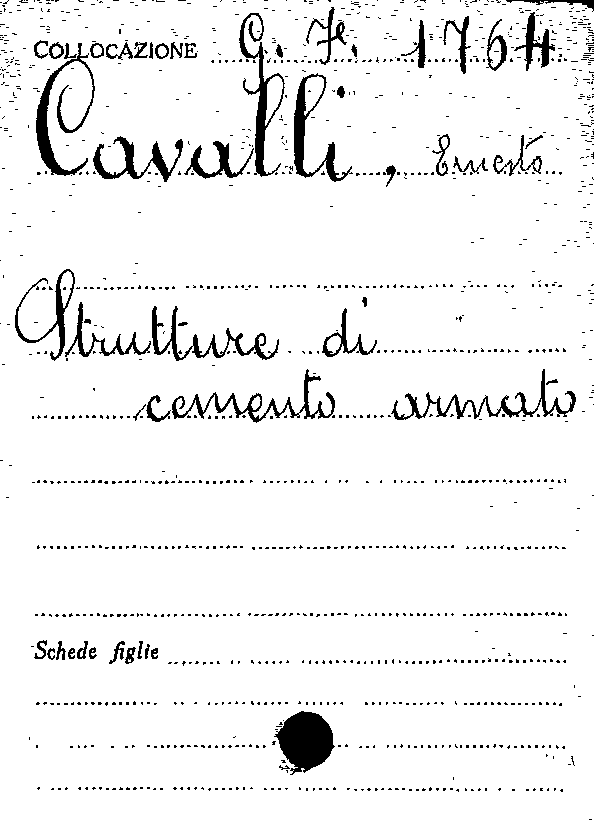 COLLOCAZIONE G. F. 1764
Cavalli, Ernesto
Strutture di
cemento armato
Schede figlie